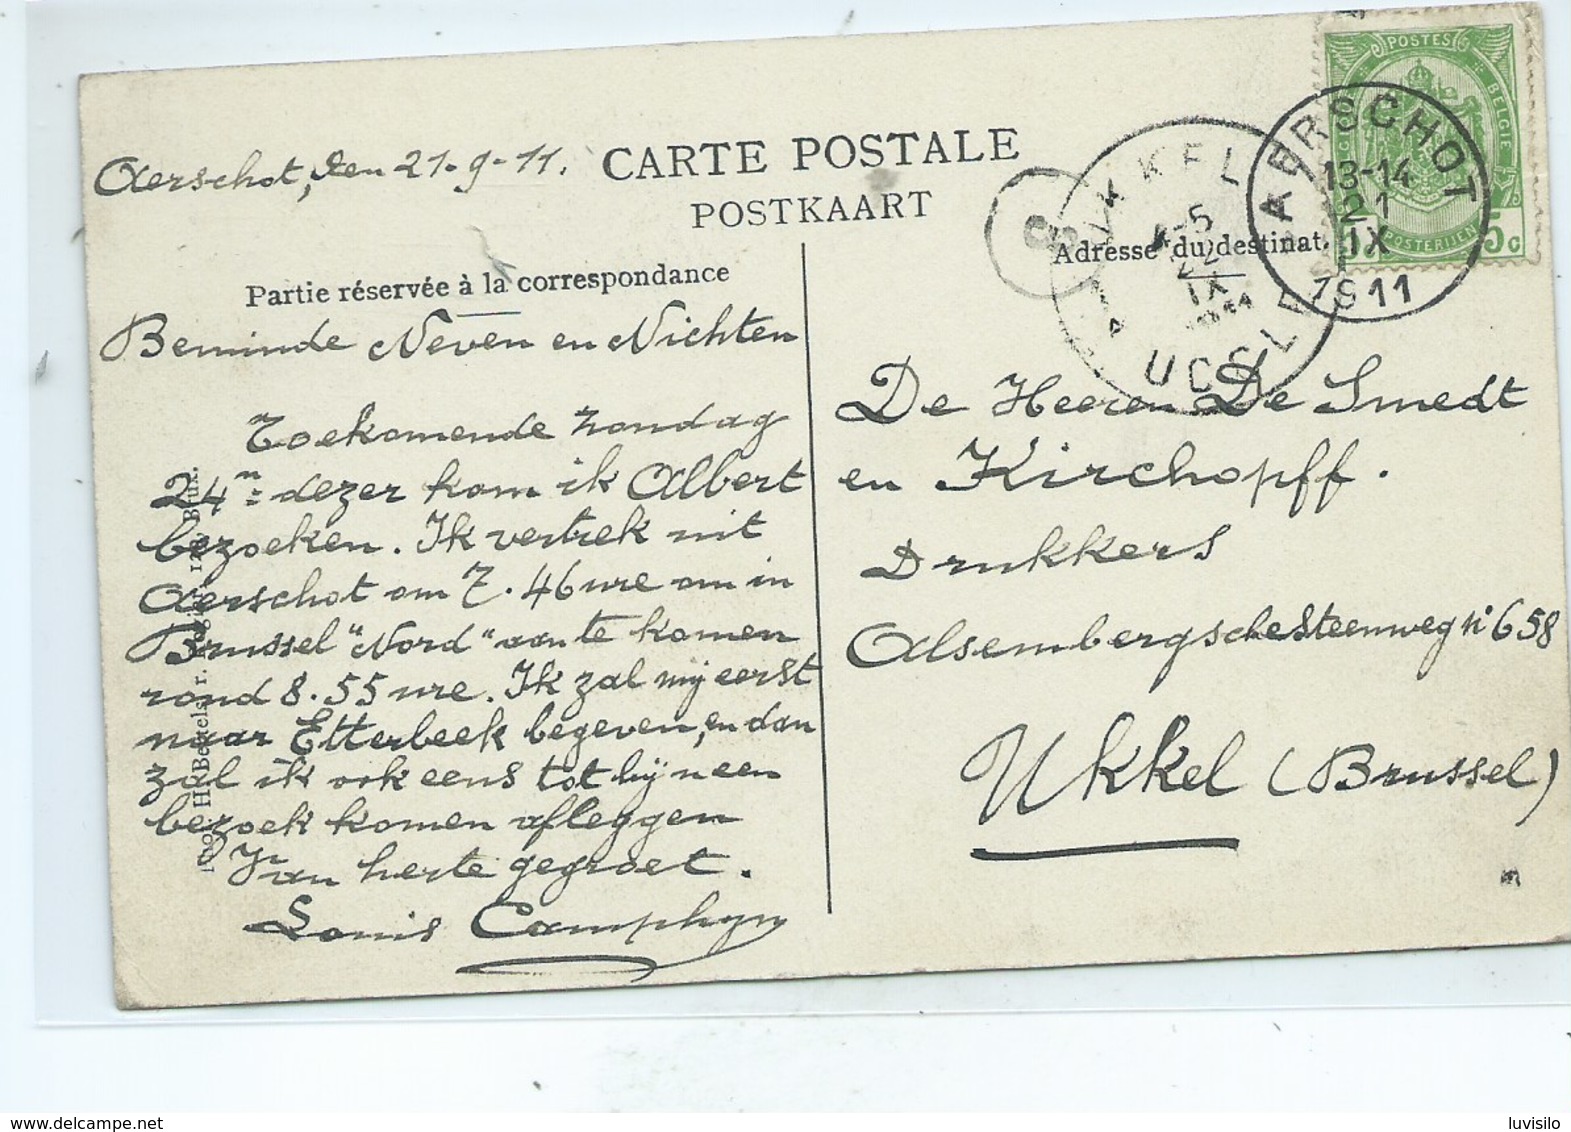 Aerschot, den 21-9-11.
CARTE POSTALE
POSTKAART
Partie réservée à la correspondance
Adresse du destinat.
Beminde Neven en Nichten
Toekomende zondag
24n= dezer kom ik Albert
bezoeken. Ik vertrek uit
Aerschot om 7.46 ure om in
Brussel "Nord" aan te komen
rond 8.55 ure. Ik zal mij eerst
naar Etterbeek begeven, en dan
zal ik ook eens tot bij u een
bezoek komen afleggen
Van herte gegroet.
Louis Camphyn
De Heeren De Smedt
en Kirchopff.
Drukkers
Alsembergschesteenweg n° 658
Ukkel (Brussel)
POSTES
BELGIQUE
BELGIE
POSTERIJEN
5 c
AERSCHOT
13-14
21
IX
1911
UKKEL
22
IX
UCCLE
luvisilo